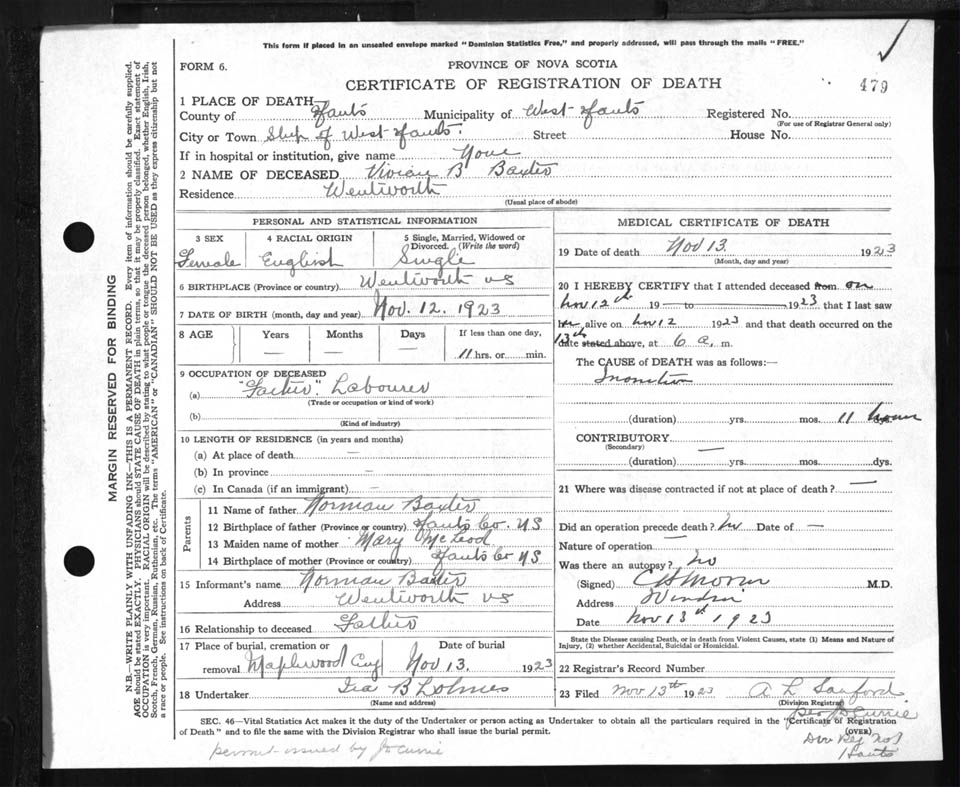 This form if placed in an unsealed envelope marked "Dominion Statistics Free," and properly addressed, will pass through the mails "FREE."
FORM 6.
PROVINCE OF NOVA SCOTIA
CERTIFICATE OF REGISTRATION OF DEATH
479
1 PLACE OF DEATH—
County of Hants Municipality of West Hants Registered No.
(For use of Registrar General only)
City or Town of West Hants. Street House No.
If in hospital or institution, give name None
2 NAME OF DECEASED Vivian B Baxter
Residence Wentworth
(Usual place of abode)
PERSONAL AND STATISTICAL INFORMATION
3 SEX 4 RACIAL ORIGIN 5 Single, Married, Widowed or Divorced. (Write the word)
Female English Single
6 BIRTHPLACE (Province or country) Wentworth NS
7 DATE OF BIRTH (month, day and year) Nov. 12. 1923
8 AGE Years Months Days If less than one day,
— — — 11 hrs. or min.
9 OCCUPATION OF DECEASED
(a) "Father" Labourer
(Trade or occupation or kind of work)
(b)
(Kind of industry)
10 LENGTH OF RESIDENCE (in years and months)
(a) At place of death —
(b) In province —
(c) In Canada (if an immigrant) —
Parents
11 Name of father Norman Baxter
12 Birthplace of father (Province or country) Hants Co. NS
13 Maiden name of mother Mary McLeod
14 Birthplace of mother (Province or country) Hants Co NS
15 Informant's name Norman Baxter
Address Wentworth NS
16 Relationship to deceased Father
17 Place of burial, cremation or removal Maplewood Date of burial Nov 13. 1923
18 Undertaker Ira B Lohnes
(Name and address)
MEDICAL CERTIFICATE OF DEATH
19 Date of death Nov 13. 1923
(Month, day and year)
20 I HEREBY CERTIFY that I attended deceased from on
Nov 12th 19 to 1923 that I last saw
her alive on Nov 12 1923 and that death occurred on the
13th date stated above, at 6 a. m.
The CAUSE of DEATH was as follows:—
Inanition
(duration) yrs. mos. 11 hours dys.
CONTRIBUTORY
(Secondary) —
(duration) yrs. mos. dys.
21 Where was disease contracted if not at place of death? —
Did an operation precede death? No Date of —
Nature of operation —
Was there an autopsy? No
(Signed) M.D.
Address Windsor
Date Nov 13th 1923
State the Disease causing Death, or in death from Violent Causes, state (1) Means and Nature of
Injury, (2) whether Accidental, Suicidal or Homicidal.
22 Registrar's Record Number
23 Filed Nov 13th 1923 A L Sanford
(Division Registrar)
per Jo Currie
SEC. 46—Vital Statistics Act makes it the duty of the Undertaker or person acting as Undertaker to obtain all the particulars required in the "Certificate of Registration
of Death" and to file the same with the Division Registrar who shall issue the burial permit.
(OVER)
Div Reg No 1
Hants
permit issued by Jo Currie
MARGIN RESERVED FOR BINDING
N.B.—WRITE PLAINLY WITH UNFADING INK—THIS IS A PERMANENT RECORD. Every item of information should be carefully supplied.
AGE should be stated EXACTLY. PHYSICIANS should STATE CAUSE OF DEATH in plain terms, so that it may be properly classified. Exact statement of
OCCUPATION is very important. RACIAL ORIGIN will be described by stating to what people or tongue the deceased person belonged, whether English, Irish,
Scotch, French, German, Russian, Ruthenian, etc. The terms "AMERICAN" or "CANADIAN" SHOULD NOT BE USED as they express citizenship but not
a race or people. See instructions on back of Certificate.